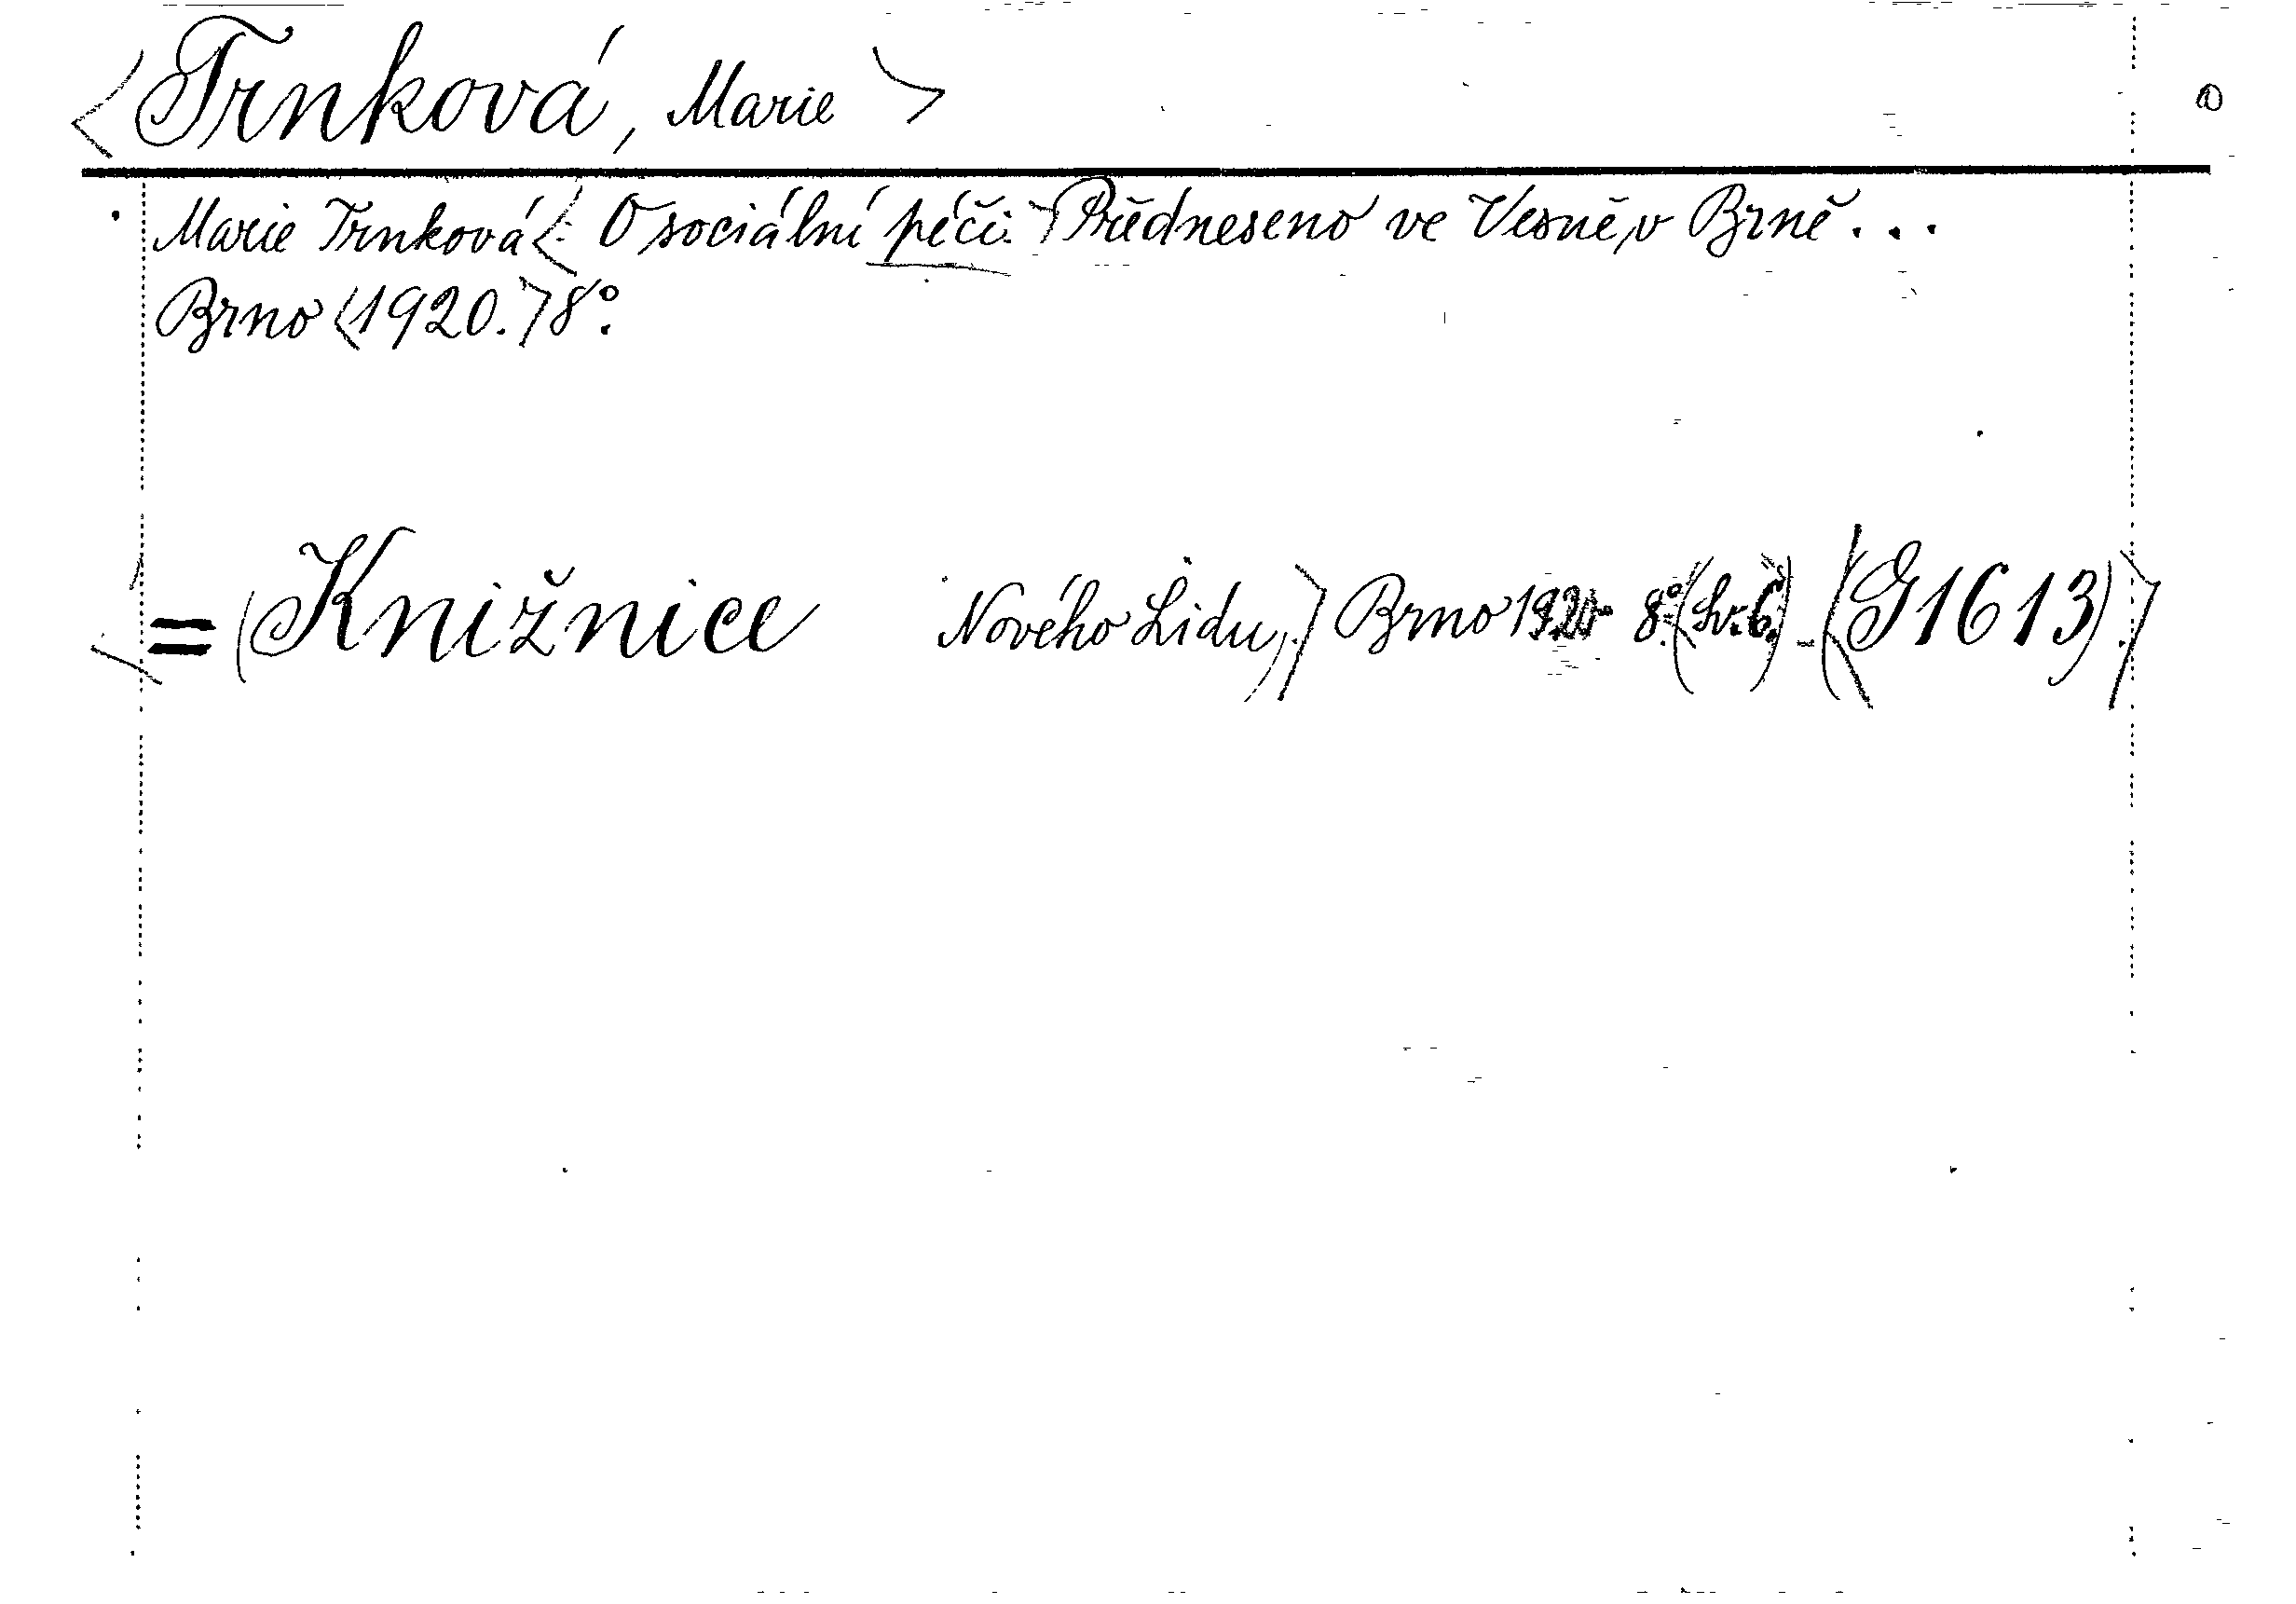 <Trnková, Marie>
Marie Trnková <: O sociální péči.> Předneseno ve Vesně, v Brně...
Brno <1920.> 8°.
<= (Knižnice Nového Lidu,.> Brno 8°. (Sv. 6.) - <(G1613).>